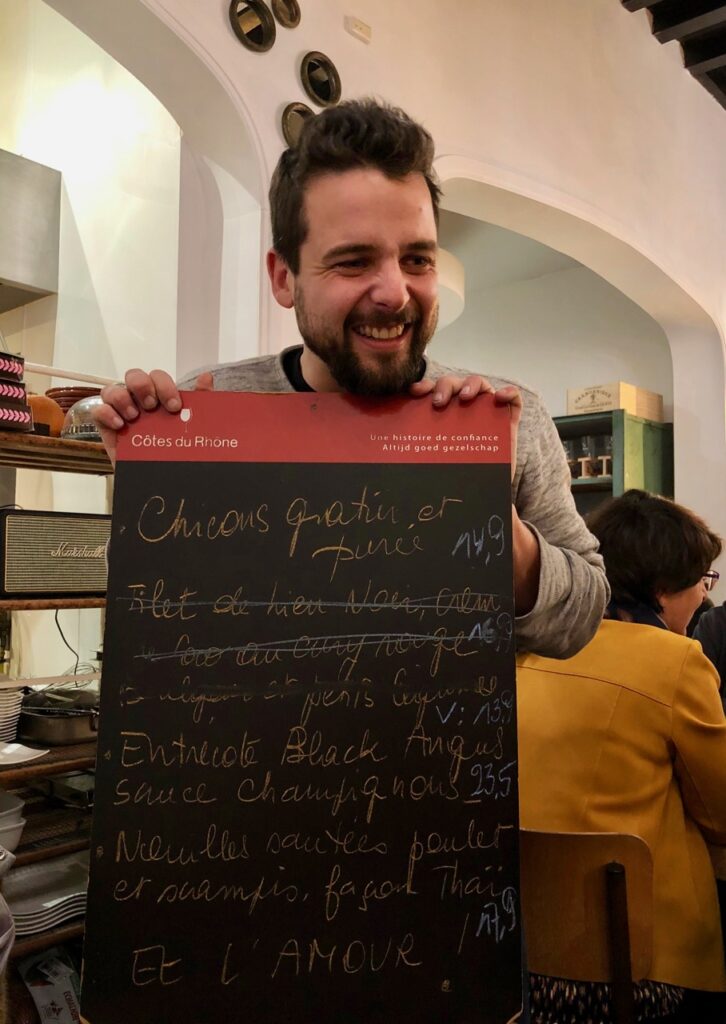 Côtes du Rhône
Une histoire de confiance
Altijd goed gezelschap
Chicons gratin et
purée 14,9
Filet de lieu Noir, crème
coco au curry rouge 16,9
et petits légumes
V: 13,9
Entrecote Black Angus
sauce champignons 23,5
Nouilles sautées poulet
et scampis, façon Thaï
! 17,9
Et L'AMOUR
Marshall